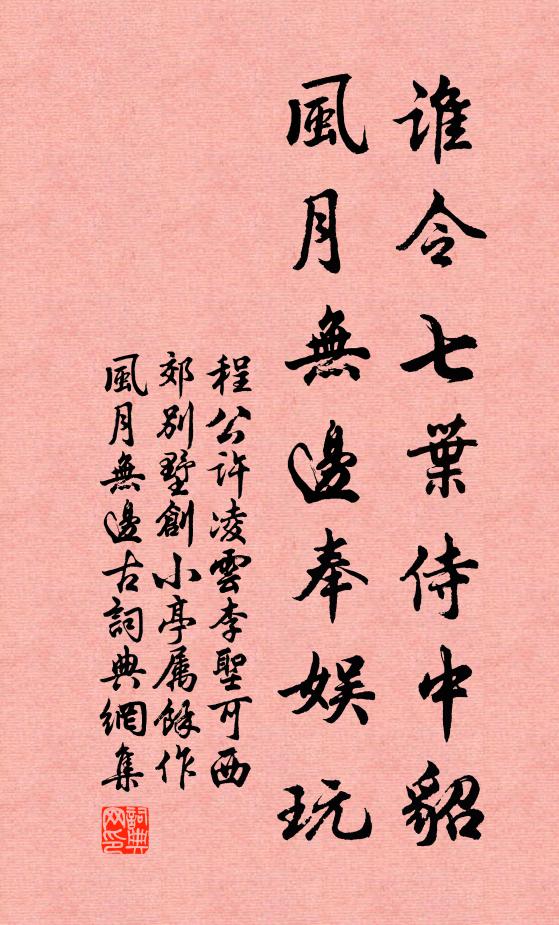 誰令七葉侍中貂
風月無邊奉娛玩
程公許凌雲李聖可西
郊別墅創小亭屬餘作
風月無邊古詞典網集
詞典
网印